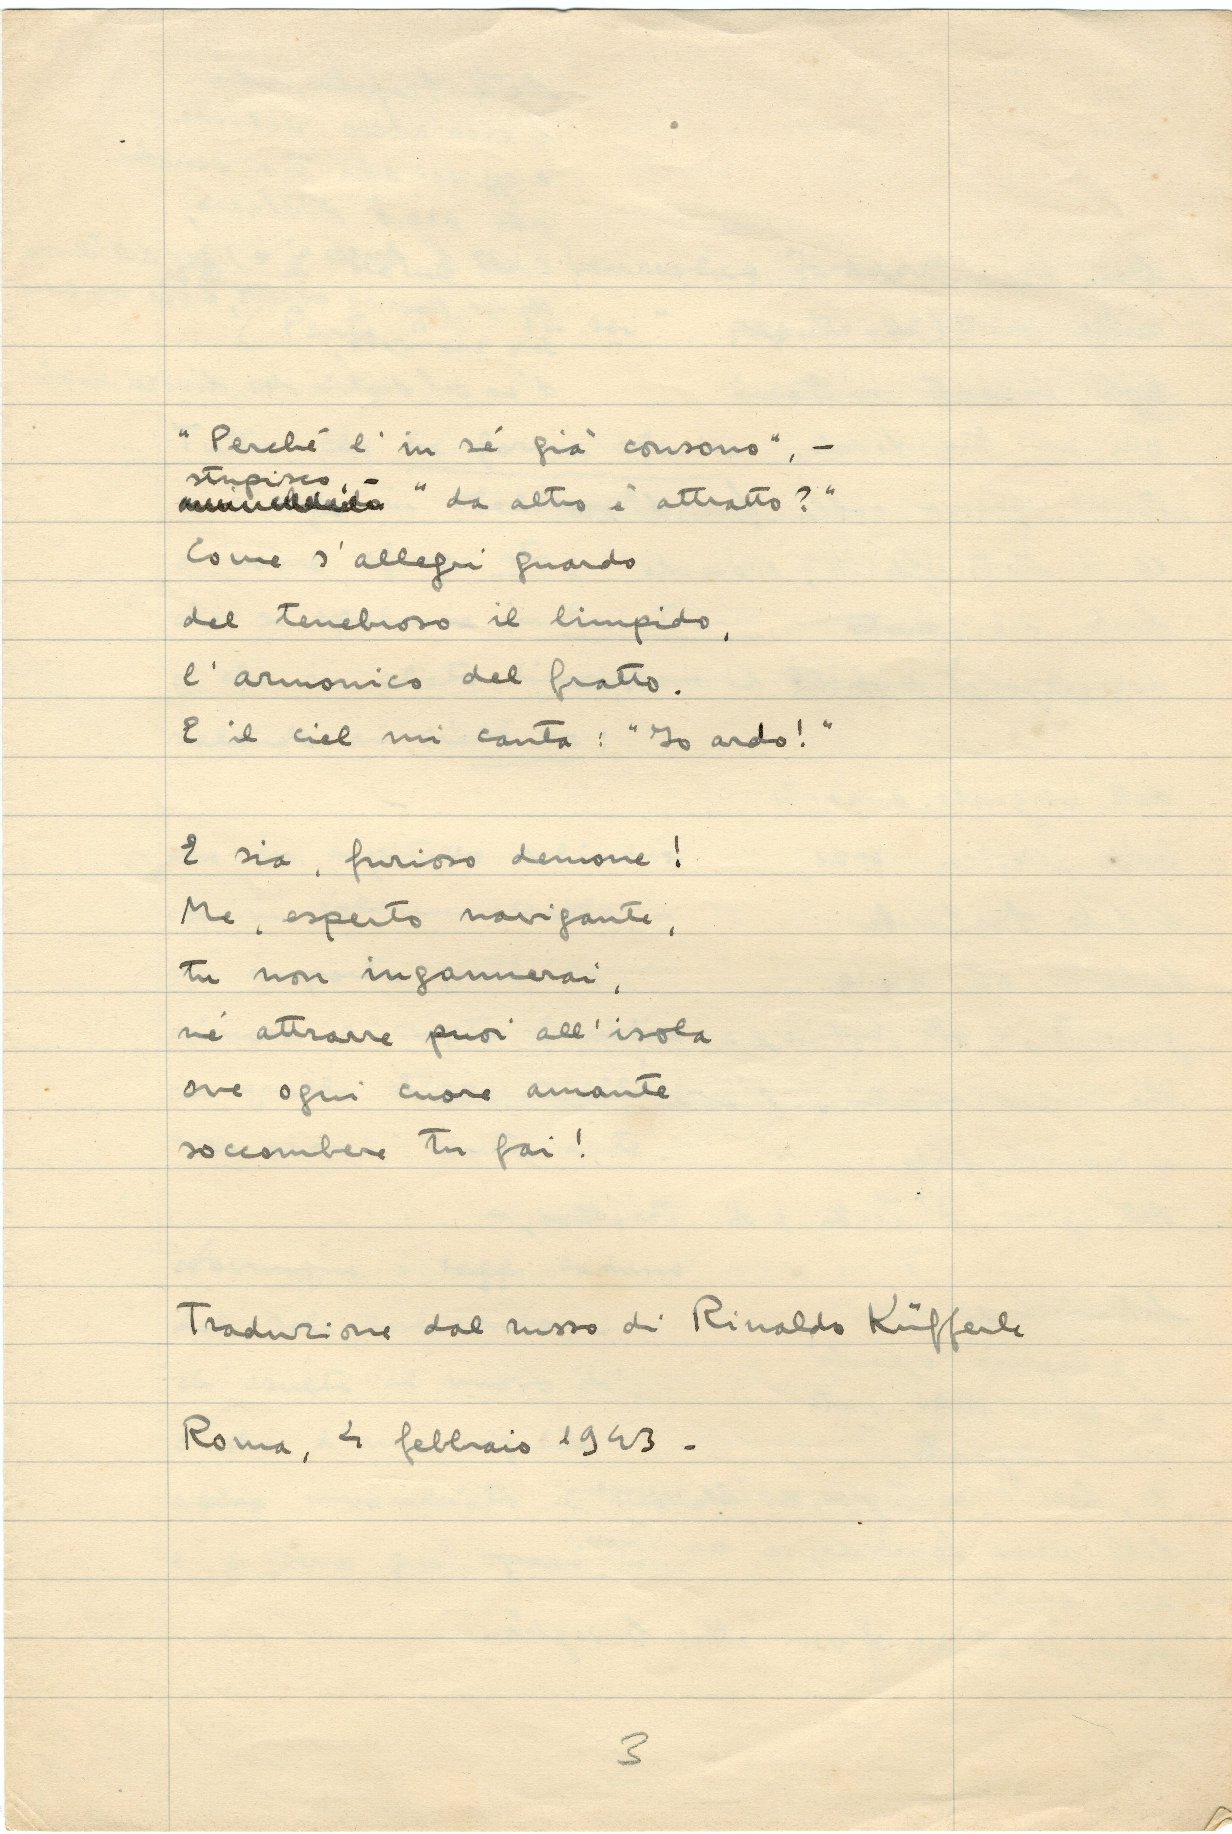 "Perché l'in sé già consono", –
stupisco, –
"da altro è attratto?"
Come s'allegri guardo
del tenebroso il limpido,
l'armonico del fratto.
E il ciel mi canta: "Io ardo!"
E sia, furioso demone!
Me, esperto navigante,
tu non ingannerai,
né attrarre puoi all'isola
ove ogni cuore amante
soccombere tu fai!
Traduzione dal russo di Rinaldo Küfferle
Roma, 4 febbraio 1943 –
3